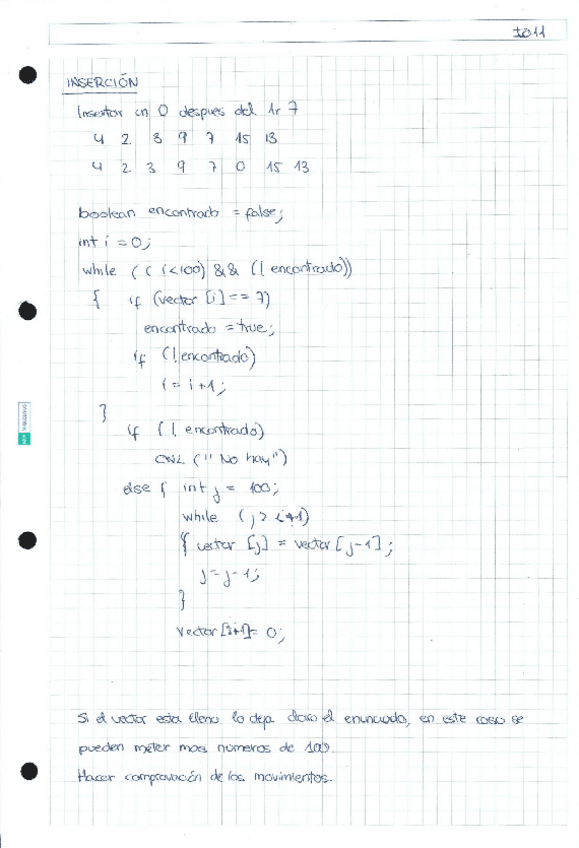 IO11
INSERCIÓN
Insertar un 0 despues del 1r 7
4 2 3 9 7 15 13
4 2 3 9 7 0 15 13
boolean encontrado = false;
int i = 0;
while (( i<100) && (! encontrado))
{ if (vector [i] == 7)
encontrado = true;
if (!encontrado)
i = i+1;
}
if (! encontrado)
CWL ("No hay")
else { int j = 100;
while (j > i+1)
{ vector [j] = vector [j-1];
j = j-1;
}
vector [i+1] = 0;
Si el vector esta lleno lo deja claro el enunciado, en este caso se
pueden meter mas numeros de 100.
Hacer comprovación de los movimientos.